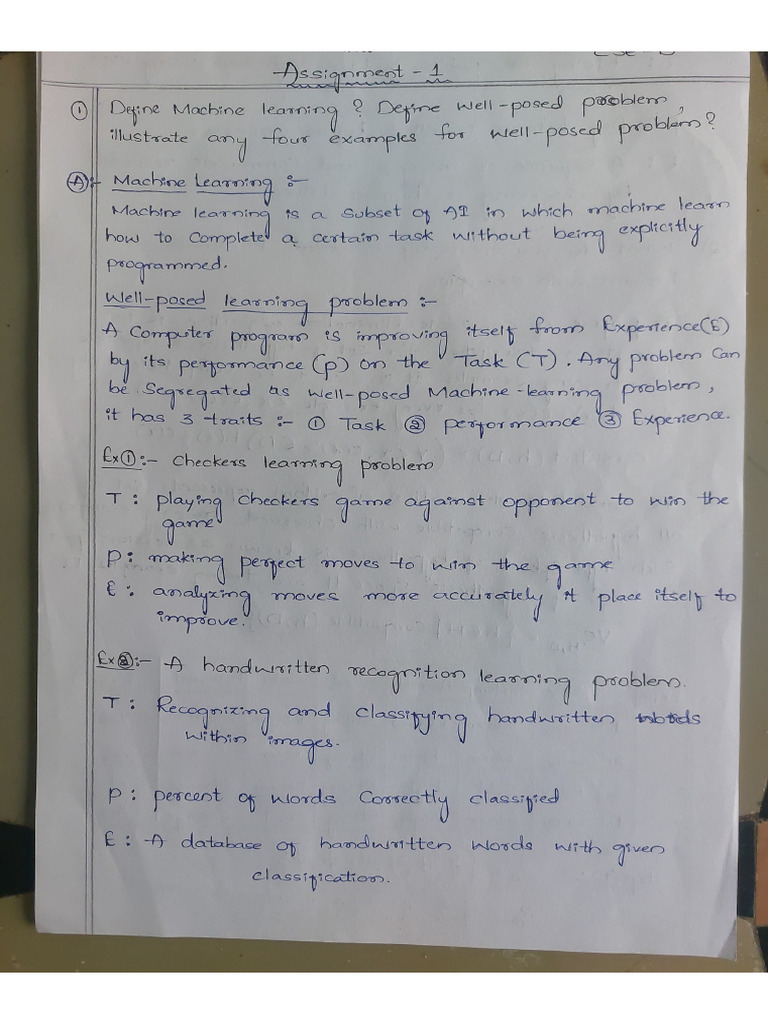 Assignment - 1
① Define Machine learning ? Define well-posed problem,
illustrate any four examples for well-posed problem?
Ⓐ:- Machine Learning :-
Machine learning is a subset of AI in which machine learn
how to complete a certain task without being explicitly
programmed.
Well-posed learning problem :-
A Computer program is improving itself from Experience(E)
by its performance (p) on the Task (T). Any problem can
be Segregated as well-posed Machine-learning problem,
it has 3 traits :- ① Task ② performance ③ Experience.
Ex①:- checkers learning problem
T : playing checkers game against opponent to win the
game
P : making perfect moves to win the game
E : analyzing moves more accurately it place itself to
improve.
Ex②:- A handwritten recognition learning problem.
T : Recognizing and classifying handwritten
within images.
P : percent of words correctly classified
E : A database of handwritten words with given
classification.